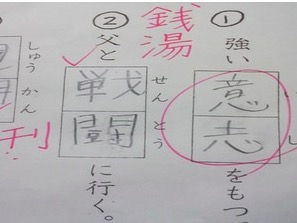 ① 強い意志をもつ
し
② 父と戦闘に行く。
せんとう
銭湯
しゅうかん
刊